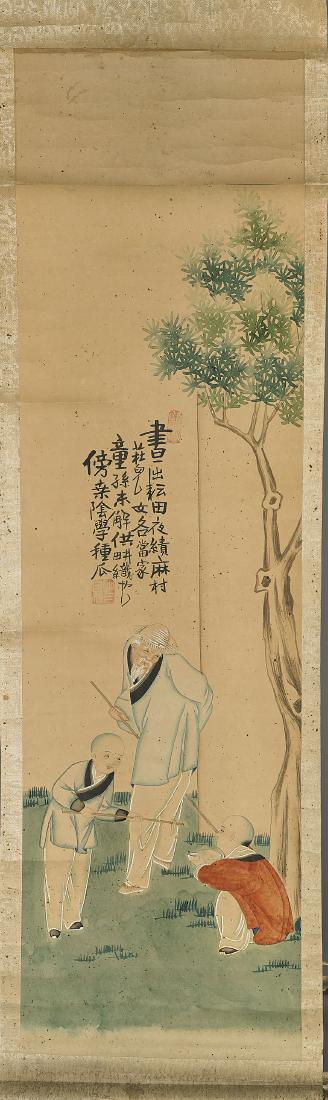 晝出耘田夜績麻村
莊兒女各當家
童孫未解供畊織也
傍桑陰學種瓜